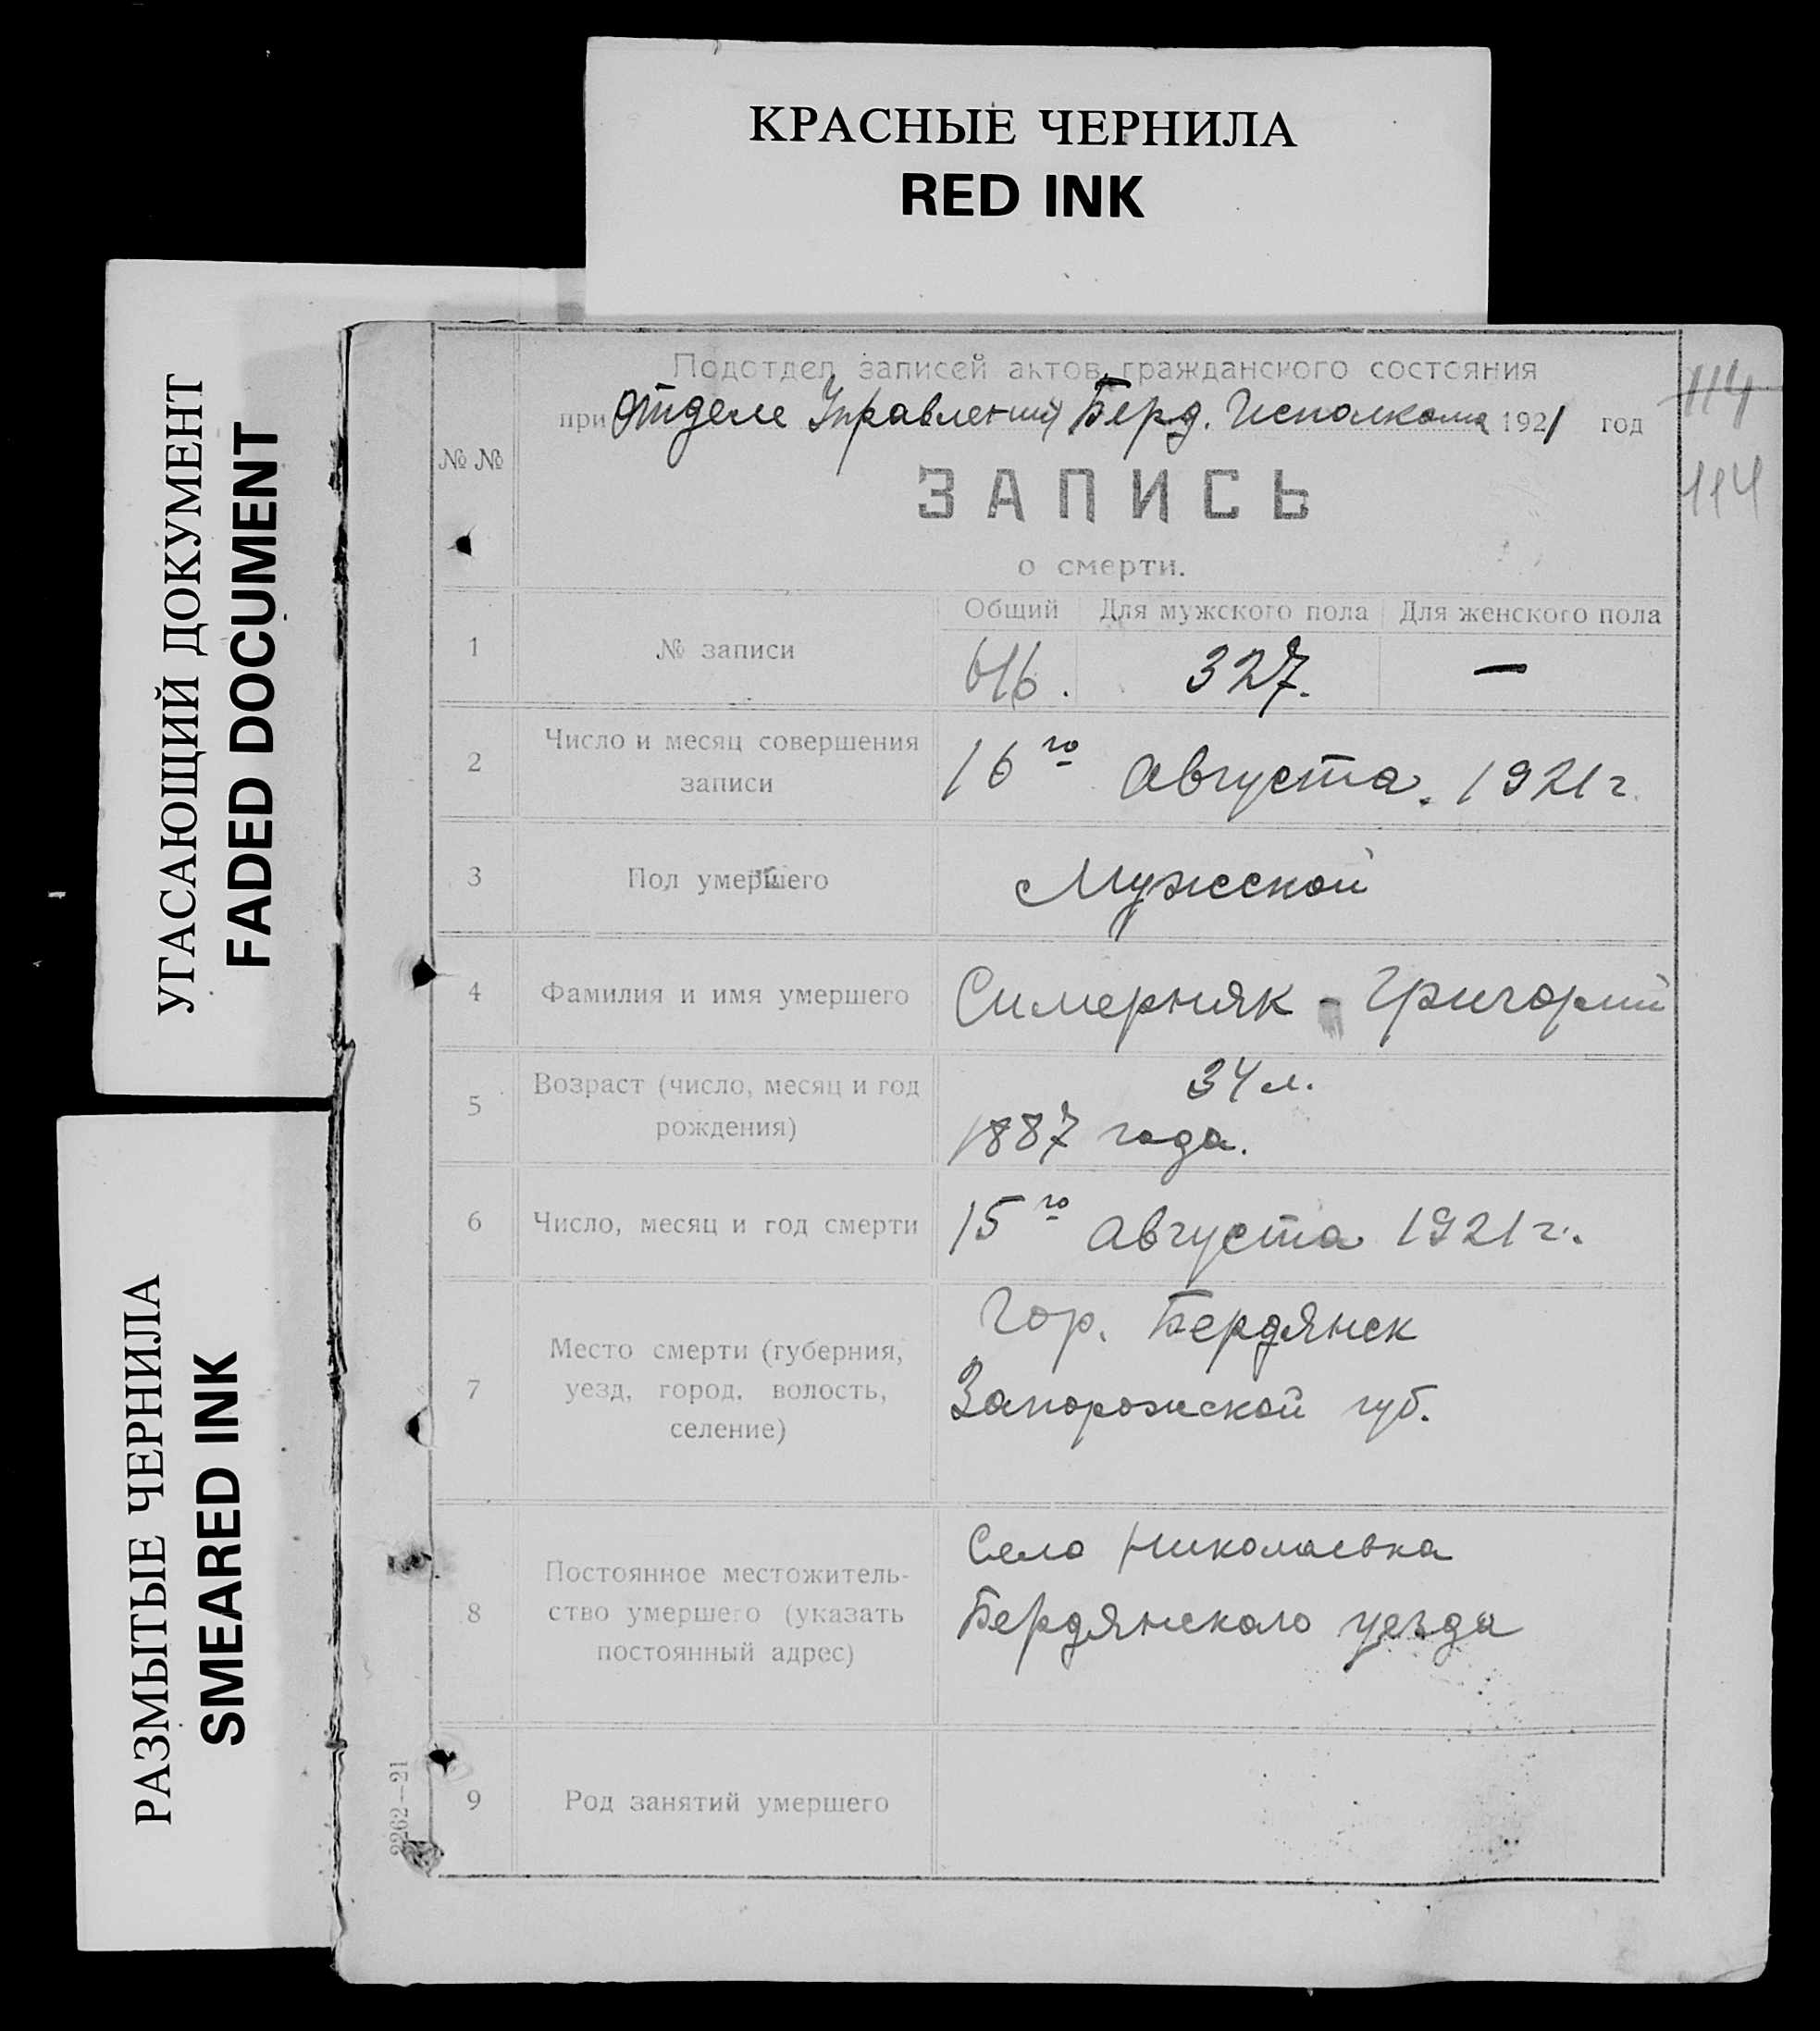 КРАСНЫЕ ЧЕРНИЛА
RED INK
УГАСАЮЩИЙ ДОКУМЕНТ
FADED DOCUMENT
РАЗМЫТЫЕ ЧЕРНИЛА
SMEARED INK
114
114
Подотдел записей актов гражданского состояния
при Отделе Управления Берд. Исполкома 1921 год
№ №
ЗАПИСЬ
о смерти.
Общий Для мужского пола Для женского пола
1 № записи 616. 327. —
2 Число и месяц совершения
записи
16го августа. 1921 г.
3 Пол умершего Мужской
4 Фамилия и имя умершего Симерняк - Григорий
5 Возраст (число, месяц и год
рождения)
34 л.
1887 года.
6 Число, месяц и год смерти 15го августа 1921 г.
7 Место смерти (губерния,
уезд, город, волость,
селение)
Гор. Бердянск
Запорожской губ.
8 Постоянное местожитель-
ство умершего (указать
постоянный адрес)
Село Николаевка
Бердянского уезда
9 Род занятий умершего
2262—21